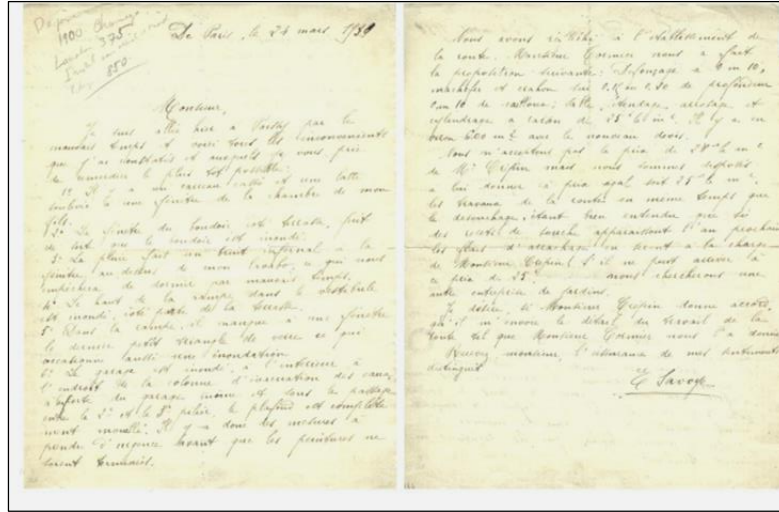 1900
375
850
De Paris, le 24 mars 1930
Monsieur,
Je suis allée hier à Poissy par le
mauvais temps et voici tous les inconvénients
que j'ai constatés et auxquels je vous prie
de remédier le plus tôt possible:
1º Il y a un carreau cassé et une latte
à une fenêtre de la chambre de mon
fils.
2º La fenêtre du boudoir côté terrasse, fuit
de sorte que le boudoir est inondé.
3º La pluie fait un bruit infernal à la
fenêtre au dessus de mon lavabo, ce qui nous
empêchera de dormir par mauvais temps.
4º Le haut de la rampe dans le vestibule
est inondé, côté porte de la terrasse.
5º Dans la rampe, il manque à une fenêtre
le dernier petit triangle de verre ce qui
occasionne aussi une inondation.
6º Le garage est inondé, à l'intérieur à
l'endroit de la colonne d'
du garage même et sous le passage
entre le 2º et le 3º pilier, le plafond est complète-
ment mouillé. Il y a donc des mesures à
prendre d'urgence avant que les peintures ne
soient terminées.
Nous avons réfléchi à l'établissement de
la route. Monsieur Cormier nous a fait
la proposition suivante: Défonçage à 0 m 10,
mâchefer et sur 0,15 ou 0,20 de profondeur
0 m 10 de cailloux; sable, étendage, arrosage et
cylindrage à raison de 25 le m². Il y a en-
viron 600 m² avec le nouveau devis.
Nous n'acceptons pas le prix de 28 le m²
de Mr Crépin mais nous sommes disposés
à lui donner à prix égal soit 25 le m²
les travaux de la route en même temps que
le dessouchage, étant bien entendu que si
des restes de souche apparaissent l'an prochain
les frais d'arrachage en seront à la charge
de Monsieur Crépin. S'il ne peut arriver à
ce prix de 25 nous chercherons une
autre entreprise de jardins.
Je désire, si Monsieur Crépin donne accord,
qu'il m'envoie le détail du travail de la
route tel que Monsieur Cormier nous l'a donné
Recevez, monsieur, l'assurance de mes sentiments
distingués
E Savoye